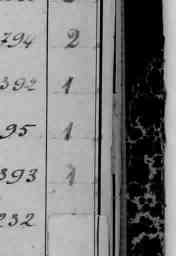 794 2
392 1
95 1
393 1
232